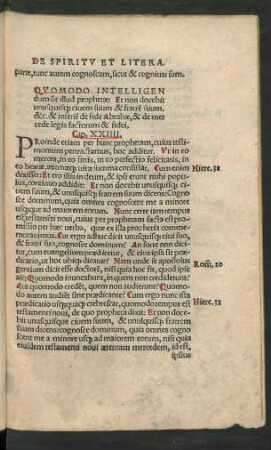 DE SPIRITV ET LITERA.
parte, tunc autem cognoscam, sicut & cognitus sum.
QVOMODO INTELLIGEN
dum sit illud prophetæ: Et non docebit
unusquisq; ciuem suum & fratrẽ suum,
&c. & mercede
legis factorum & fidei.
Cap. XXIIII.
PRoinde etiam per hunc prophetam, cuius testi-
monium pertractamus, hoc additur. Vt in eo
merces, in eo finis, in eo perfectio felicitatis, in
eo beatæ æternæq; uitæ summa consistat. Cum enim
Hiere. 31
dixisset: Et ero illis in deum, & ipsi erunt mihi popu-
lus, continuo addidit: Et non docebit unusquisq; ci-
uem suum, & unusquisq; fratrem suum dicens: Cogno
sce dominum, quia omnes cognoscent me a minore
usq; ad maiorem eorum. Nunc certe iam tempus
est testamenti noui, cuius per prophetam facta est pro
missio per hæc uerba, quæ ex illa prophetia comme-
morauimus. Cur ergo adhuc dicit unusquisq; ciui suo
& fratri suo, cognosce dominum? An forte non dici-
tur, cum euangelium prædicatur, & eius ipsa sit prædi
catio, ut hoc ubiq; dicatur? Nam unde se apostolus
gentium dicit esse doctorẽ, nisi quia hoc fit, quod ipse
Rom. 10
ait: Quomodo inuocabunt, in quem non crediderunt?
Aut quomodo credẽt, quem non audierunt? Quomo
do autem audiẽt sine prædicante? Cum ergo nunc ista
prædicatio usquequaq; crebrescat, quomodo tempus est
testamenti noui, de quo propheta dixit: Et non do-
Hiere. 31
cebit unusquisque ciuem suum, & unusquisq; fratrem
suum dicens: cognosce dominum, quia omnes cogno
scent me a minore usq; ad maiorem eorum, nisi quia
eiusdem testamenti noui æternam mercedem, id est,
ipsius